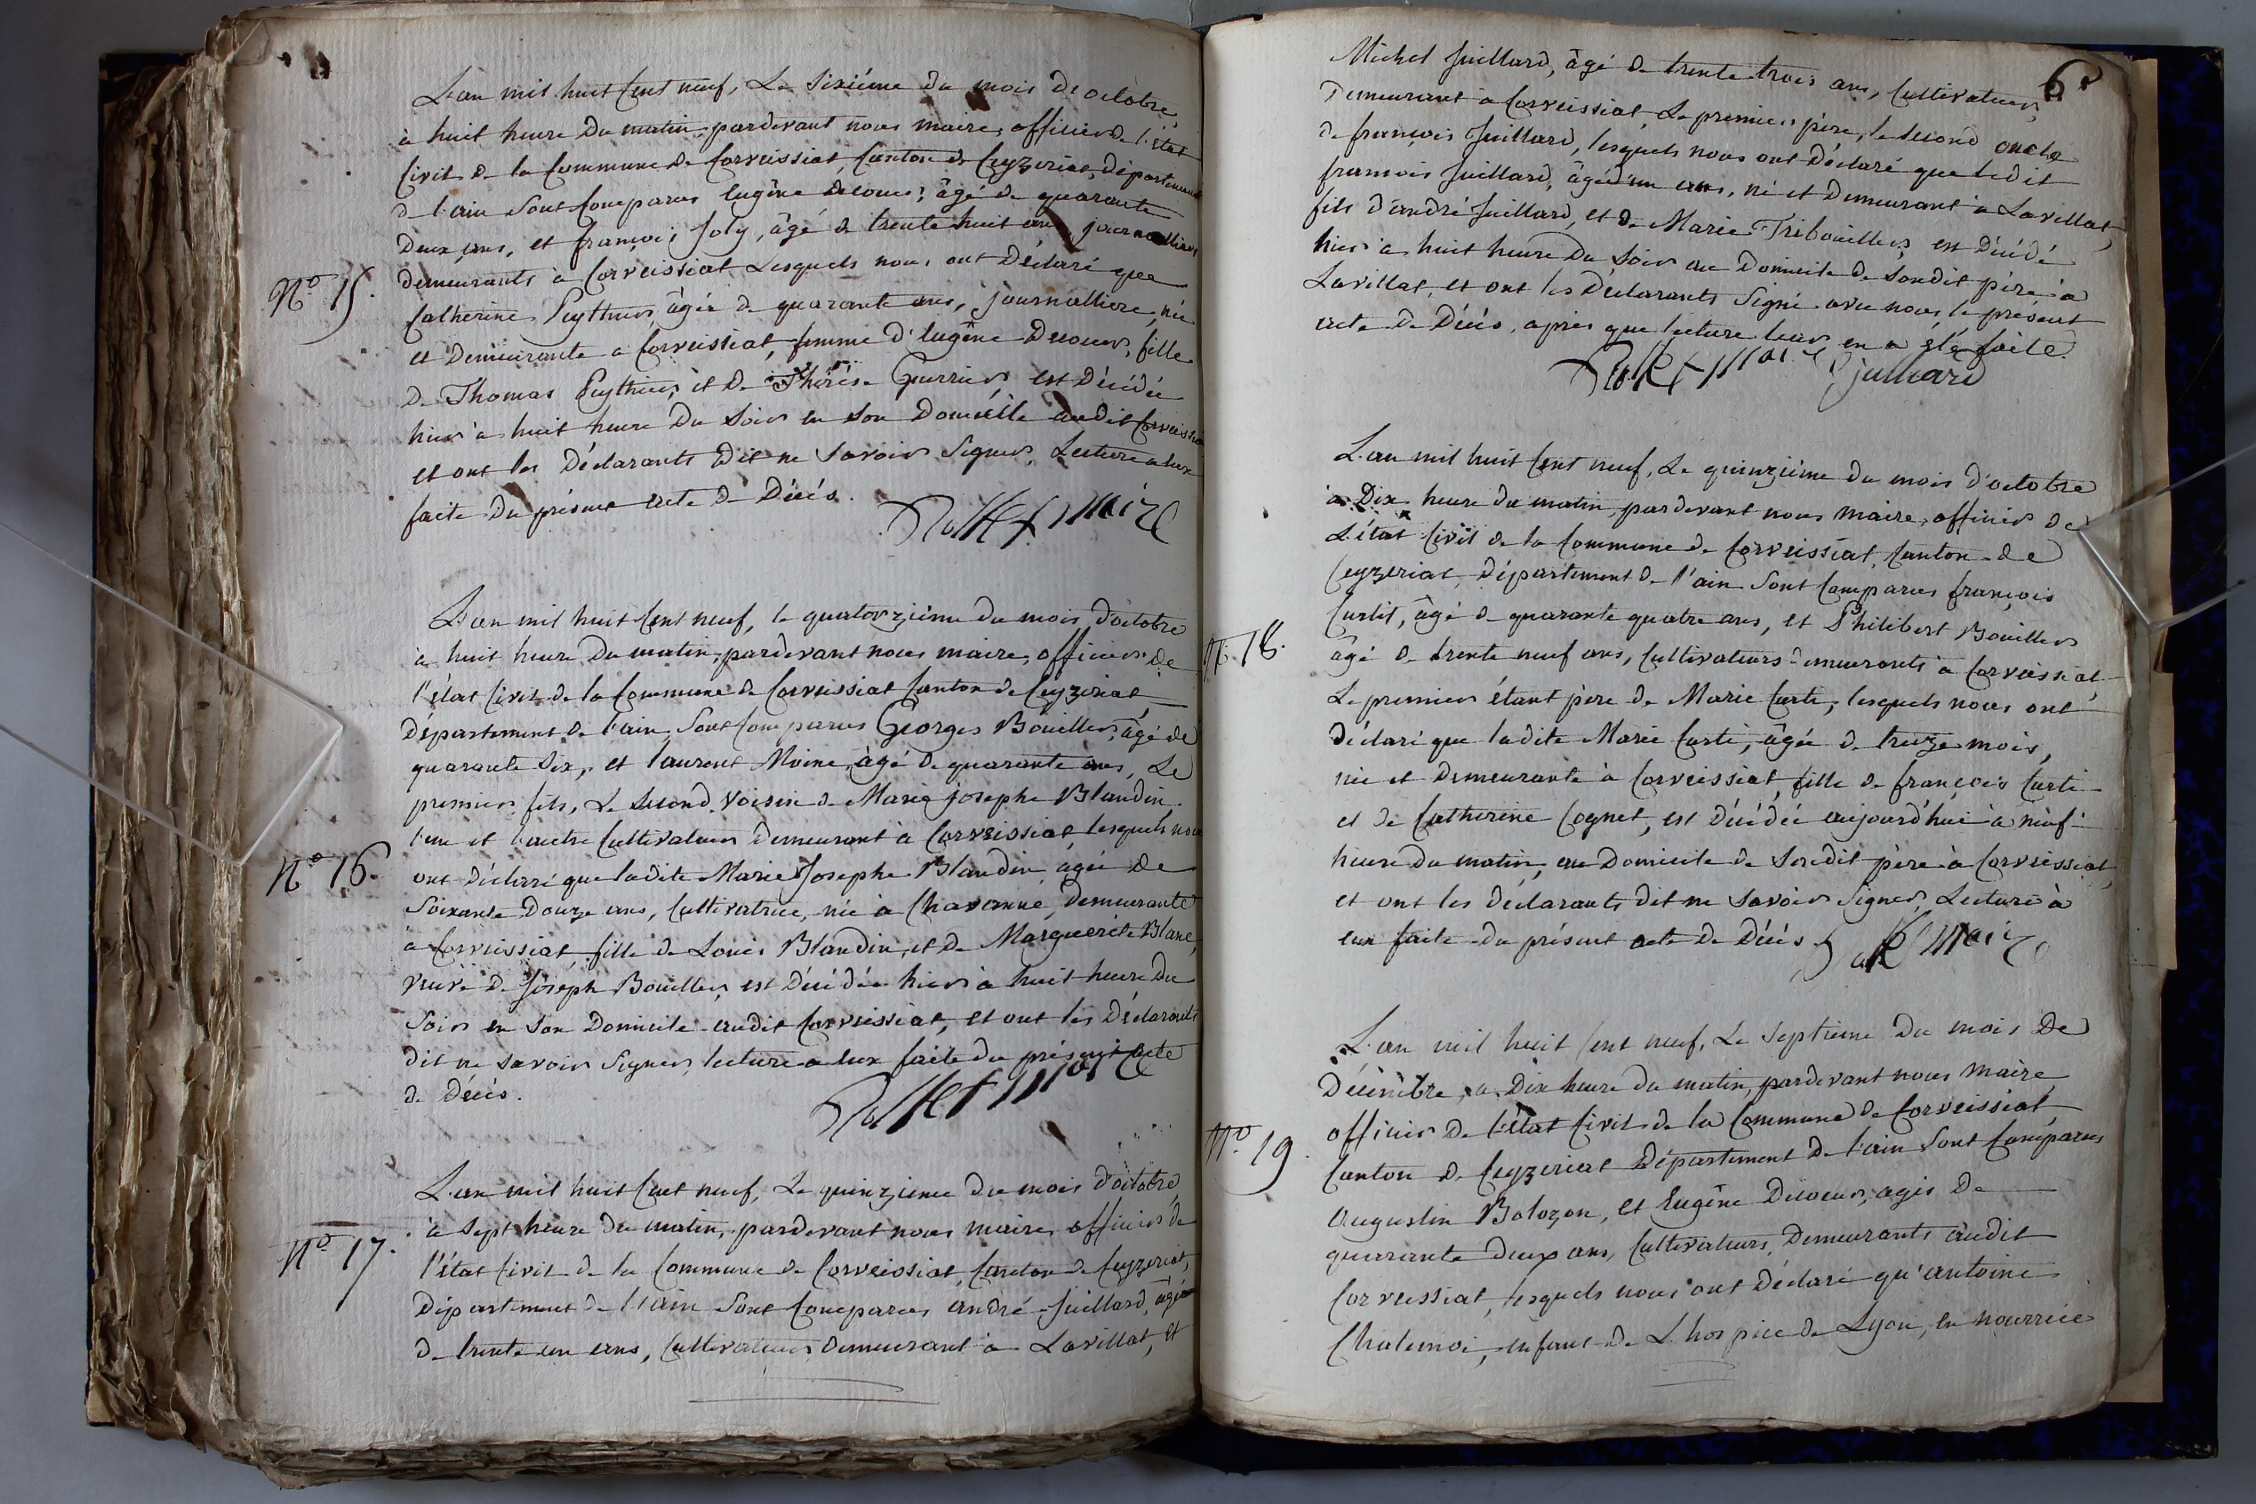 L'an mil huit Cent neuf, Le Sixiéme du mois de octobre,
à huit heure du matin, pardevant nous maire, officier de l'état
Civil de la Commune de Corveissiat, Canton de Ceyzeriat, département
de l'ain Sont Comparus Eugêne Decoeur, âgé de quarante
deux ans, et françois Joly, âgé de trente huit ans journalliers
demeurants à Corveissiat Lesquels nous ont Déclaré que
Nº 15.
Catherine Peythieu, âgée de quarante ans, journalliere, née
et Demeurante a Corveissiat, femme d'Eugêne Decoeur, fille
de Thomas Peythieu, et de Thérése Guerrier, est Décédée
hier à huit heure du Soir en Son Domicile audit Corveissiat
et ont les Déclarants dit ne Savoir Signer, Lecture à eux
faite du présent acte de Décés.
Rollet maire
L'an mil huit Cent neuf, le quatorziéme du mois d'octobre
à huit heure du matin, pardevant nous maire, officier de
l'état Civil de la Commune de Corveissiat Canton de Ceyzeriat,
Département de l'ain, Sont Comparus Georges Bouiller, âgé de
quarante Six, et Laurent Moine, âgé de quarante ans, Le
premier fils, Le Second Voisin de Marie josephe Blandin
l'un et l'autre Cultivateur Demeurant à Corveissiat, lesquels nous
Nº 16.
ont déclaré que ladite Marie Josephe Blandin, agée de
Soixante Douze ans, Cultivatrice, née à Chavanne, Demeurante
a Corveissiat, fille de Louis Blandin, et de Marguerite Blanc,
veuve de Joseph Bouiller, est Décédée hier à huit heure du
Soir en Son Domicile audit Corveissiat, et ont les Déclarants
dit ne savoir Signer, lecture a eux faite du présent acte
de Décés.
Rollet maire
L'an mil huit Cent neuf, Le quinziéme du mois d'octobre,
à Sept heure du matin, pardevant nous maire, officier de
Nº 17.
l'état Civil de la Commune de Corveissiat, Canton de Ceyzeriat,
Département de l'ain Sont Comparus andré Juillard, âgé
de trente un ans, Cultivateur Demeurant à Lavillat, et
6
Michel Juillard, âgé de trente trois ans, Cultivateur,
Demeurant à Corveissiat, Le premier père, le Second oncle
de françois Juillard, lesquels nous ont Déclaré que ledit
françois Juillard, âgé d'un ans, né et Demeurant à Lavillat,
fils d'andré Juillard, et de Marie Tribouiller, est Décédé
hier à huit heure du Soir au Domicile de Sondit père à
Lavillat, et ont les Déclarants Signé avec nous, le présent
acte de Décés, apres que lecture leur en a été faite.
Rollet maire juillard
L'an mil huit Cent neuf, Le quinziéme du mois d'octobre
à Dix heure du matin, pardevant nous maire, officier de
L'état Civil de la Commune de Corveissiat, Canton de
Ceyzeriat, Département de l'ain Sont Comparus françois
Curtit, âgé de quarante quatre ans, et Philibert Bouiller
Nº 18.
âgé de trente neuf ans, Cultivateurs demeurants à Corveissiat,
Le premier étant père de Marie Curti, lesquels nous ont
déclaré que ladite Marie Curti, âgée de treize mois,
née et demeurante à Corveissiat, fille de françois Curti
et de Catherine Cognet, est Décédée aujourd'hui à neuf
heure du matin, au Domicile de Sondit père à Corveissiat,
et ont les déclarants dit ne savoir Signer, Lecture à
eux faite du présent acte de Décés
Rollet maire
L'an mil huit Cent neuf, Le Septieme du mois de
Décembre, à Dix heure du matin, pardevant nous maire
officier de l'état Civil de la Commune de Corveissiat
Nº 19.
Canton de Ceyzeriat Département de l'ain Sont Comparus
augustin Bolozon, et Eugêne Decoeur, agés de
quarante deux ans, Cultivateurs, Demeurants audit
Corveissiat, lesquels nous ont Déclaré qu'antoine
Chalemoi, enfant de L'hospice de Lyon, en nourrice